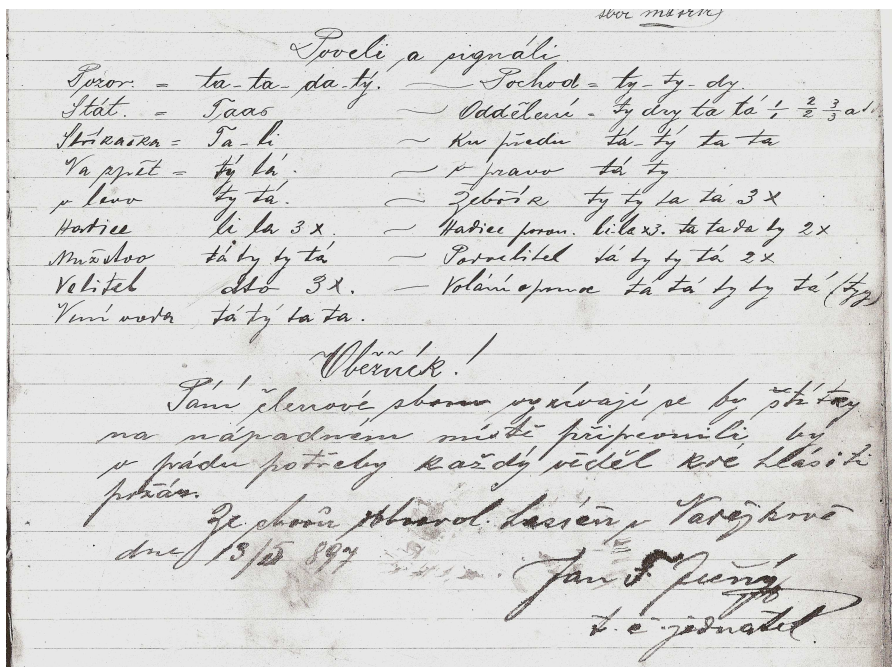 sbor
Poveli a signáli
Pozor. = ta-ta-da-tý. — Pochod = ty-ty-dy.
Stát. = Taas — Oddělení = ty dry ta tá 1/1 2/2 3/3 a
Stříkačka = Ta-li — Ku předu tá-tý ta ta
Na zpět = tý tá. — v pravo tá ty
v levo ty tá. — Žebřík ty ty ta tá 3 x
Hadice li la 3 x. — Hadice porou. li la x3. ta ta da ty 2 x
Mužstvo tá ty ty tá — Porvelitel tá ty ty tá 2 x
Velitel ató 3 x. — Volání o pomoc tá tá ty ty tá
Není voda tá tý ta ta.
Oběžník!
Páni členové sboru vyzívají se by štítky
na nápadném místě připevnili, by
v pádu potřeby každý věděl kde hlásiti
požár.
Ze sboru dobrovol. hasičů v
dne 13/ 897
Jan F.
t. č. jednatel.